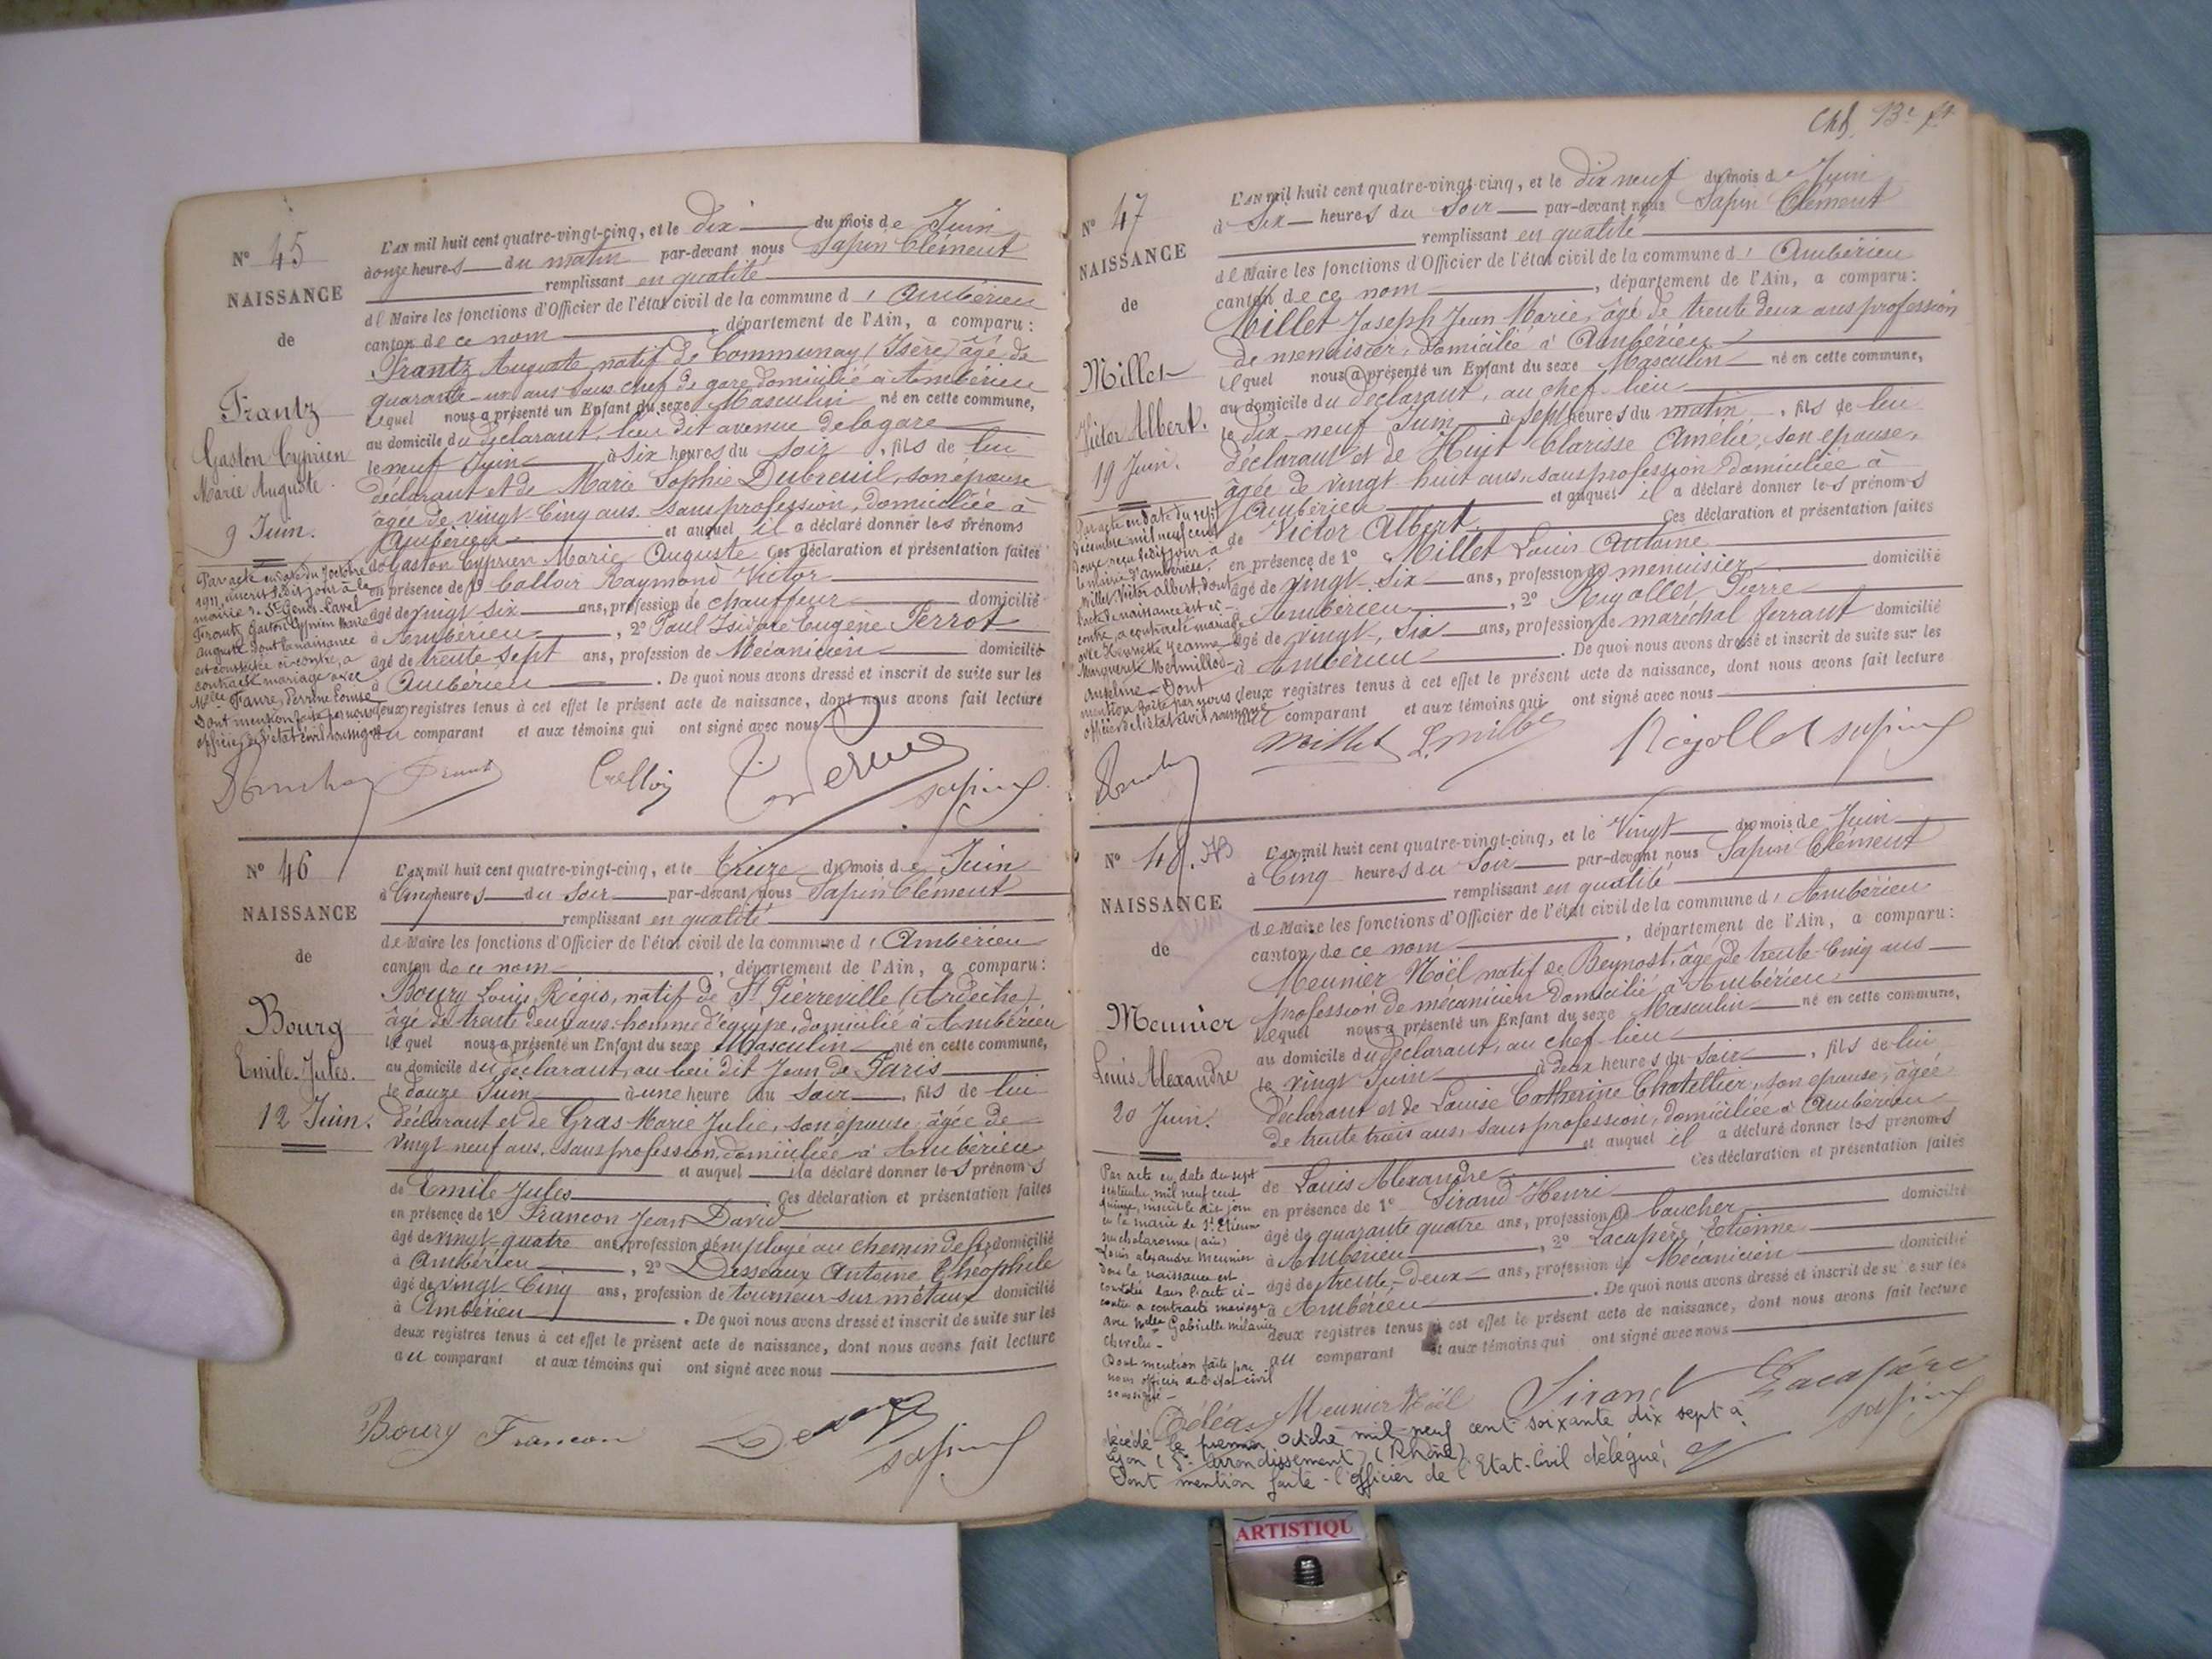 N° 45
NAISSANCE
de
Frantz
Gaston Cyprien
Marie Auguste
9 Juin.
L'AN mil huit cent quatre-vingt-cinq, et le dix du mois de Juin
à onze heures du matin par-devant nous Sapin Clément
remplissant en qualité
de Maire les fonctions d'Officier de l'état civil de la commune d'Ambérieu
canton de ce nom, département de l'Ain, a comparu:
Frantz Auguste natif de Communay (Isère) âgé de
quarante-un ans sous chef de gare domicilié à Ambérieu
lequel nous a présenté un Enfant du sexe Masculin né en cette commune,
au domicile du déclarant, lieu dit avenue de la gare
le neuf Juin à six heures du soir, fils de lui
déclarant et de Marie Sophie Dubreuil, son épouse
âgée de vingt-cinq ans. sans profession, domiciliée à
Ambérieu et auquel il a déclaré donner les prénoms
de Gaston Cyprien Marie Auguste Ces déclaration et présentation faites
en présence de 1° Calloir Raymond Victor
âgé de vingt six ans, profession de chauffeur domicilié
à Ambérieu, 2° Paul Isidore Eugène Perrot
âgé de trente sept ans, profession de Mécanicien domicilié
à Ambérieu. De quoi nous avons dressé et inscrit de suite sur les
deux registres tenus à cet effet le présent acte de naissance, dont nous avons fait lecture
au comparant et aux témoins qui ont signé avec nous
Par acte en date du 7 octobre
1911, inscrit le dit jour à la
mairie de St Genis Laval
Frantz Gaston Cyprien Marie
Auguste dont la naissance
est constatée ci-contre, a
contracté mariage avec
Melle Faure, Perrine Louise
Dont mention faite par nous
officier de l'état civil soussigné
Frantz
sapin
N° 46
NAISSANCE
de
Bourg
Emile Jules.
12 Juin.
L'AN mil huit cent quatre-vingt-cinq, et le treize du mois de Juin
à cinq heures du soir par-devant nous Sapin Clément
remplissant en qualité
de Maire les fonctions d'Officier de l'état civil de la commune d'Ambérieu
canton de ce nom, département de l'Ain, a comparu:
Bourg Louis Régis, natif de St Pierreville (Ardèche)
âgé de trente deux ans: homme d'équipe, domicilié à Ambérieu
lequel nous a présenté un Enfant du sexe Masculin né en cette commune,
au domicile du déclarant, au lieu dit Jean de Paris
le douze Juin à une heure du soir, fils de lui
déclarant et de Gras Marie Julie, son épouse, âgée de
vingt neuf ans, sans profession, domiciliée à Ambérieu
et auquel il a déclaré donner les prénoms
de Emile Jules Ces déclaration et présentation faites
en présence de 1° Francon Jean David
âgé de vingt-quatre ans, profession d'employé au chemin de fer domicilié
à Ambérieu, 2° Dusseaux Antoine Théophile
âgé de vingt cinq ans, profession de tourneur sur métaux domicilié
à Ambérieu. De quoi nous avons dressé et inscrit de suite sur les
deux registres tenus à cet effet le présent acte de naissance, dont nous avons fait lecture
au comparant et aux témoins qui ont signé avec nous
Bourg Francon
sapin
N° 47
NAISSANCE
de
Millet
Victor Albert.
19 Juin.
L'AN mil huit cent quatre-vingt-cinq, et le dix neuf du mois de Juin
à six heures du soir par-devant nous Sapin Clément
remplissant en qualité
de Maire les fonctions d'Officier de l'état civil de la commune d'Ambérieu
canton de ce nom, département de l'Ain, a comparu:
Millet Joseph Jean Marie, âgé de trente deux ans profession
de menuisier, domicilié à Ambérieu
lequel nous a présenté un Enfant du sexe Masculin né en cette commune,
au domicile du déclarant, au chef-lieu
le dix neuf Juin à sept heures du matin, fils de lui
déclarant et de Huit Clarisse Amélie, son épouse,
âgée de vingt huit ans, sans profession, domiciliée à
Ambérieu et auquel il a déclaré donner les prénoms
de Victor Albert. Ces déclaration et présentation faites
en présence de 1° Millet Louis Antoine
âgé de vingt-six ans, profession de menuisier domicilié
à Ambérieu, 2° Rigollet Pierre
âgé de vingt-six ans, profession de maréchal ferrant domicilié
à Ambérieu. De quoi nous avons dressé et inscrit de suite sur les
deux registres tenus à cet effet le présent acte de naissance, dont nous avons fait lecture
au comparant et aux témoins qui ont signé avec nous
Par acte en date du sept
décembre mil neuf cent
douze reçu le dit jour à
la mairie d'Ambérieu,
Millet Victor Albert, dont
l'acte de naissance est ci-
contre, a contracté mariage
avec Henriette Jeanne
Marguerite Vermillod-
Anselme - Dont
mention faite par nous
officier de l'état civil soussigné
Millet L. Millet Rigollet sapin
N° 48.
NAISSANCE
de
Meunier
Louis Alexandre
20 Juin.
L'AN mil huit cent quatre-vingt-cinq, et le vingt du mois de Juin
à cinq heures du soir par-devant nous Sapin Clément
remplissant en qualité
de Maire les fonctions d'Officier de l'état civil de la commune d'Ambérieu
canton de ce nom, département de l'Ain, a comparu:
Meunier Noël natif de Beynost, âgé de trente-cinq ans
profession de mécanicien domicilié à Ambérieu
lequel nous a présenté un Enfant du sexe Masculin né en cette commune,
au domicile du déclarant, au chef-lieu
le vingt Juin à deux heures du soir, fils de lui
déclarant et de Louise Catherine Chatellier, son épouse, âgée
de trente trois ans, sans profession, domiciliée à Ambérieu
et auquel il a déclaré donner les prénoms
de Louis Alexandre. Ces déclaration et présentation faites
en présence de 1° Sirand Henri
âgé de quarante quatre ans, profession de boucher domicilié
à Ambérieu, 2° Lacapère Etienne
âgé de trente-deux ans, profession de Mécanicien domicilié
à Ambérieu. De quoi nous avons dressé et inscrit de suite sur les
deux registres tenus à cet effet le présent acte de naissance, dont nous avons fait lecture
au comparant et aux témoins qui ont signé avec nous
Par acte en date du sept
septembre mil neuf cent
quinze, inscrit le dit jour
en la mairie de St Etienne
sur chalaronne (ain)
Louis alexandre Meunier
dont la naissance est
constatée dans l'acte ci-
contre a contracté mariage
avec Melle Gabrielle mélanie
Chevelu -
Dont mention faite par
nous officier de l'état civil
soussigné -
Meunier Noël Sirand Lacapère
sapin
décédé le premier octobre mil neuf cent soixante dix sept à
Lyon (5e arrondissement) (Rhône)
Dont mention faite - l'officier de l'Etat-Civil délégué,
ARTISTIQU